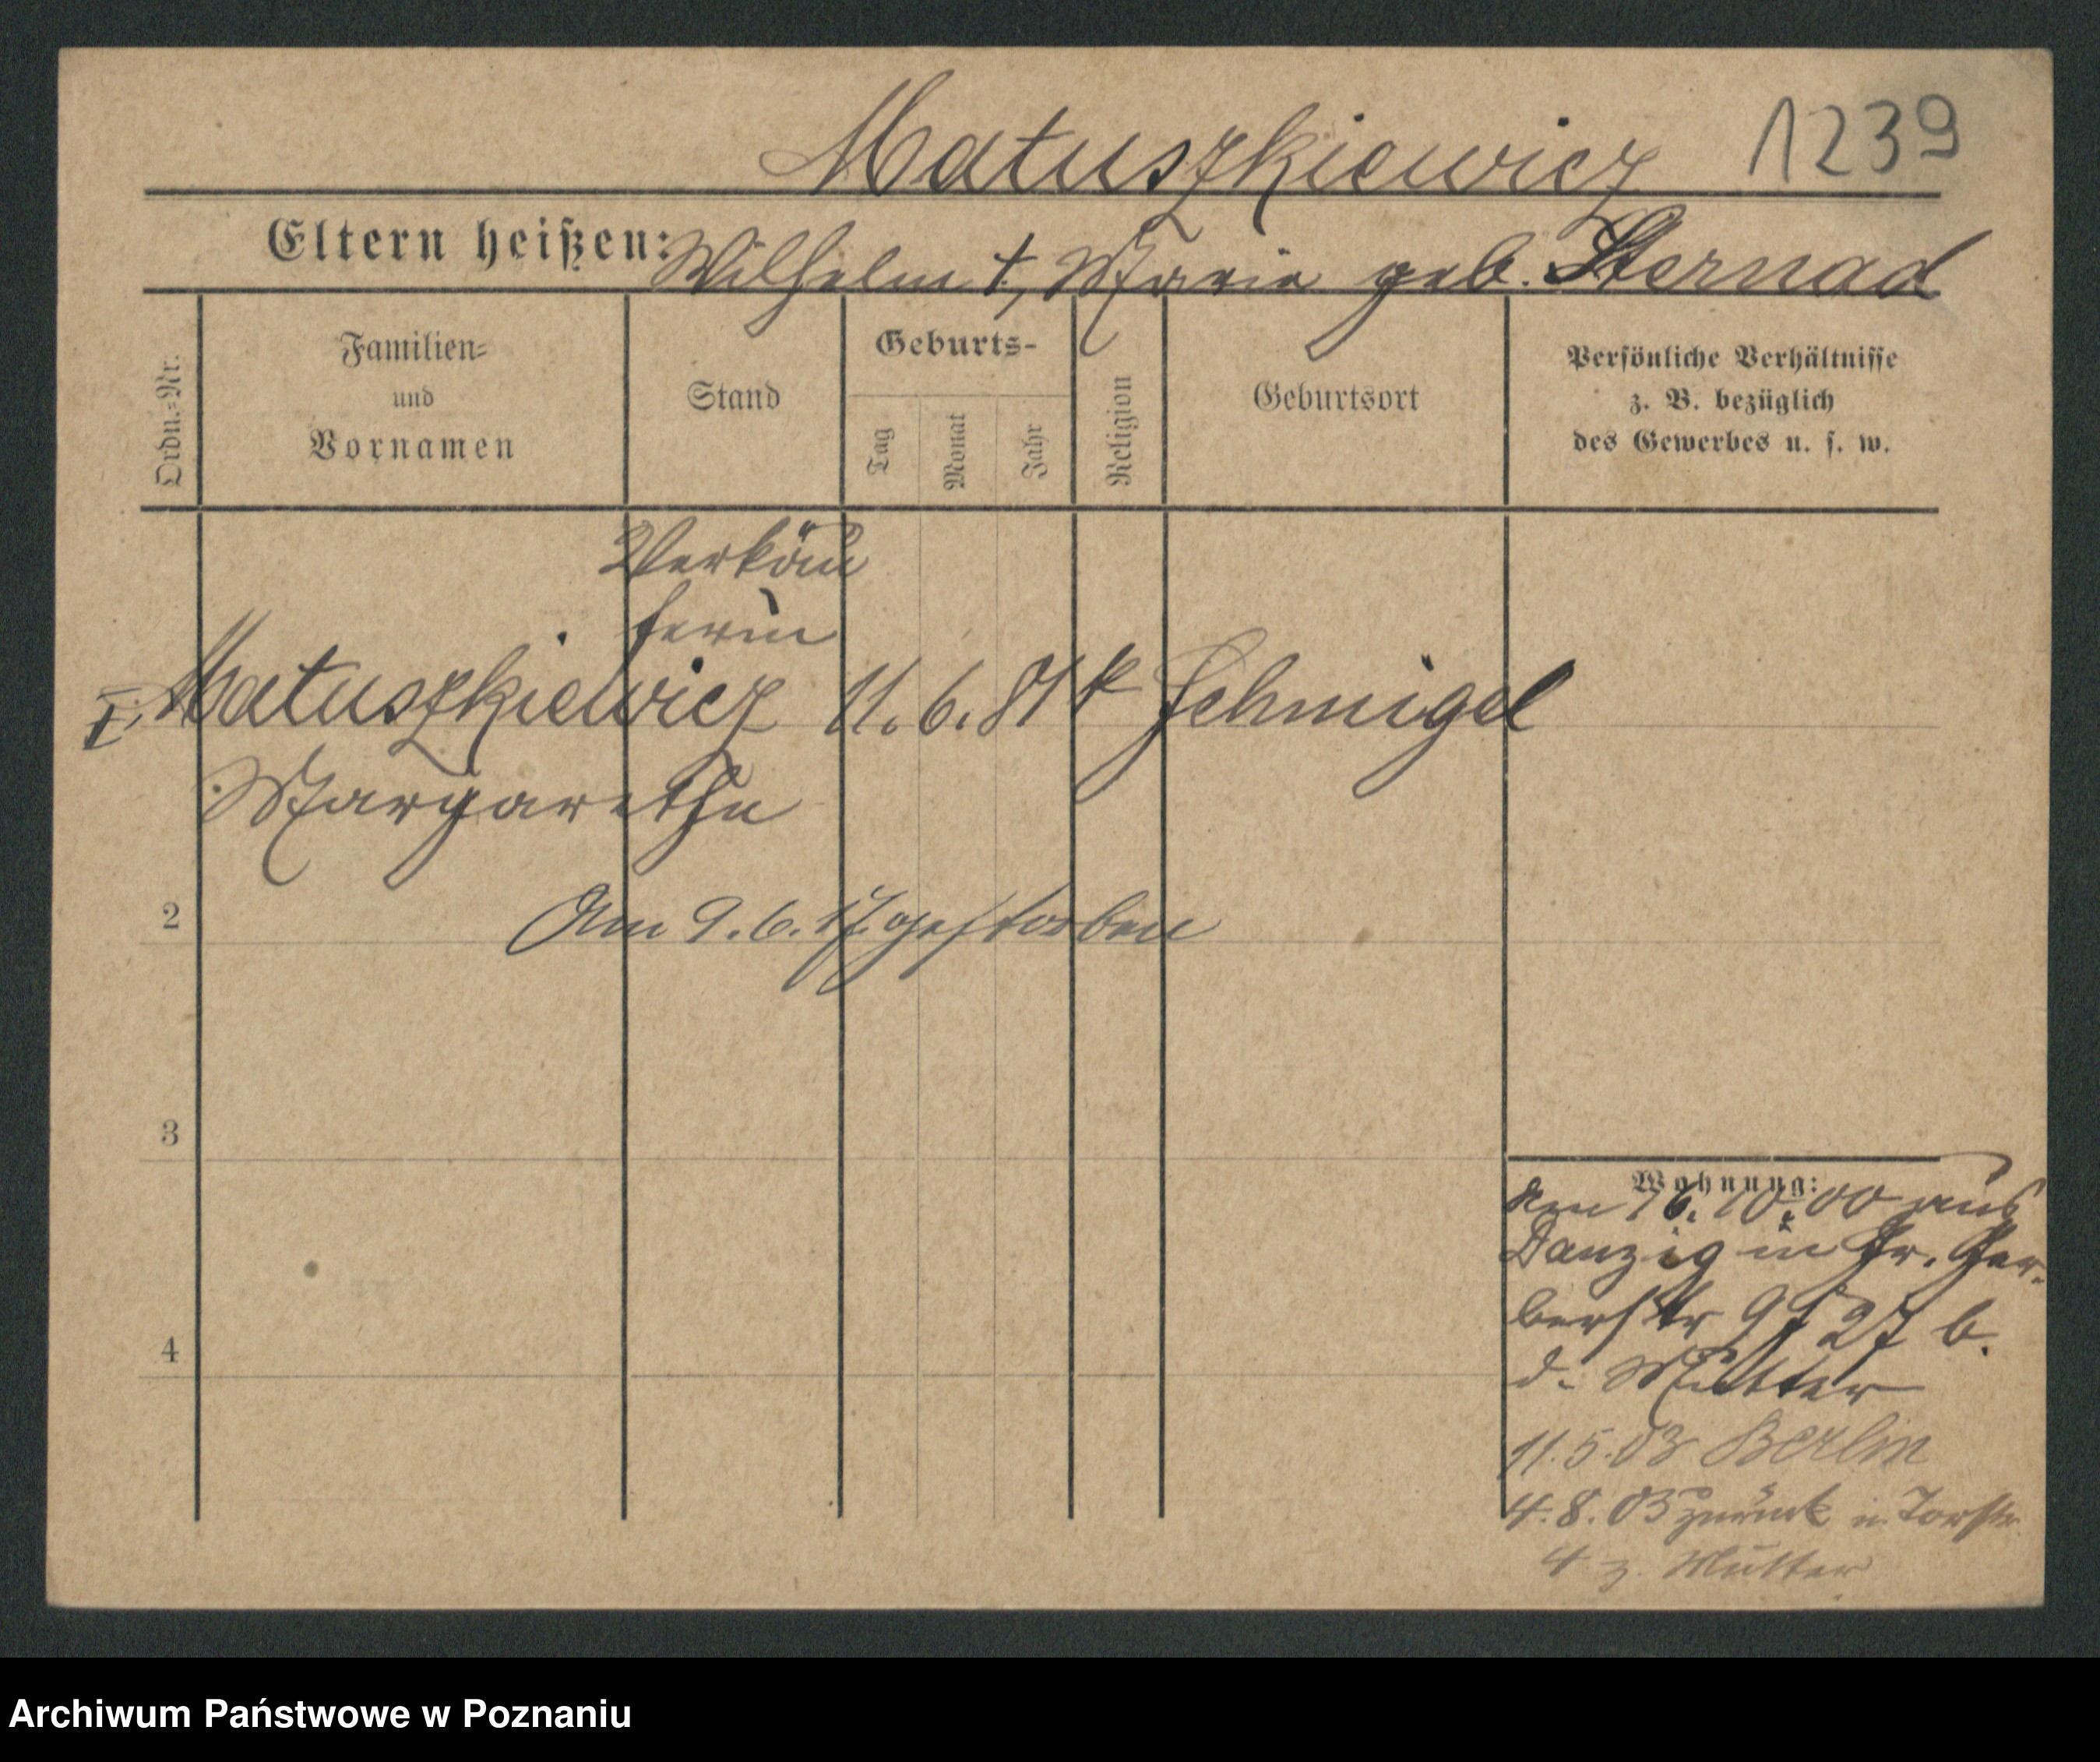 Matuszkiewicz 1239
Eltern heißen: Wilhelm †, Maria geb. Sternad
Ordn.=Nr.
Familien=
und
Vornamen
Stand
Geburts-
Tag
Monat
Jahr
Religion
Geburtsort
Persönliche Verhältnisse
z. B. bezüglich
des Gewerbes u. s. w.
Verkäu
ferin
I. Matuszkiewicz 11. 6. 81 k Schmigel
Margarethe
2
Am 9. 6. 17. gestorben
3
4
Wohnung:
Am 16. 10. 00 aus
Danzig in Gr. Ger-
berstr 9 27 b.
d. Mutter
11.5.03 Berlin
4.8.03 zurück in Torstr
4 z. Mutter
Archiwum Państwowe w Poznaniu